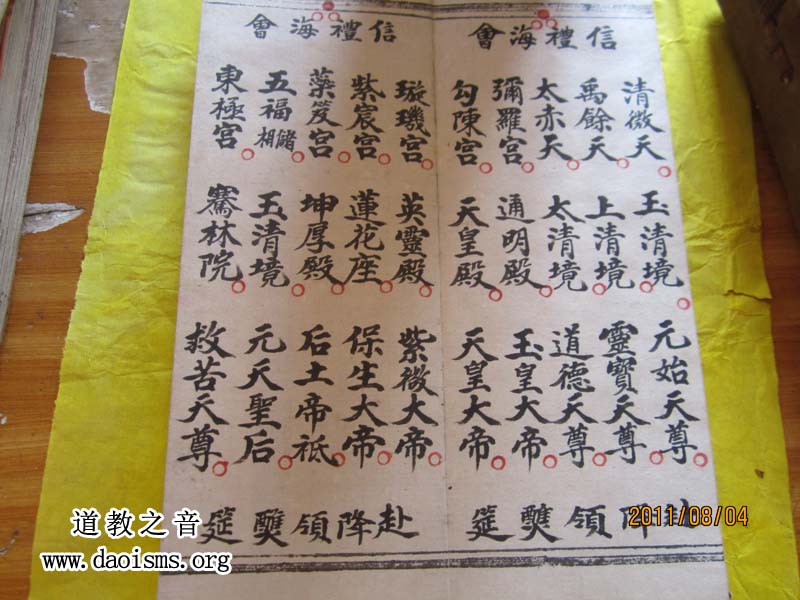 信禮海會
清微天 玉清境 元始天尊
禹餘天 上清境 靈寶天尊
太赤天 太清境 道德天尊
彌羅宮 通明殿 玉皇大帝
勾陳宮 天皇殿 天皇大帝
降領醮筵
信禮海會
璇璣宮 英靈殿 紫微大帝
紫宸宮 蓮花座 保生大帝
蘂笈宮 坤厚殿 后土帝祇
五福儲相 玉清境 元天聖后
東極宮 騫林院 救苦天尊
赴降領醮筵
2011/08/04
道教之音
www.daoisms.org